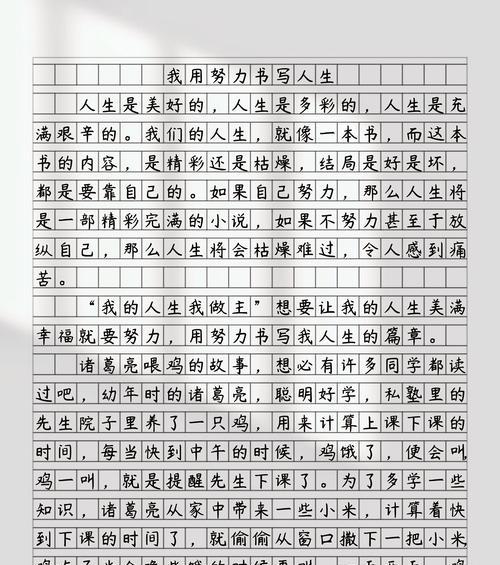 我用努力书写人生
人生是美好的，人生是多彩的，人生是充
满艰辛的。我们的人生，就像一本书，而这本
书的内容，是精彩还是枯燥，结局是好是坏，
都是要靠自己的。如果自己努力，那么人生将
是一部精彩完满的小说，如果不努力甚至于放
纵自己，那么人生将会枯燥难过，令人感到痛
苦。
“我的人生我做主”想要让我的人生美满
幸福就要努力，用努力书写我人生的篇章。
诸葛亮喂鸡的故事，想必有许多同学都读
过吧，幼年时的诸葛亮，聪明好学，私塾里的
先生院子里养了一只鸡，用来计算上课下课的
时间，每当快到中午的时候，鸡饿了，便会叫
鸡一叫，就是提醒先生下课了。为了多学一些
知识，诸葛亮从家中带来一些小米，计算着快
到下课的时间了，就偷偷从窗口撒下一把小米